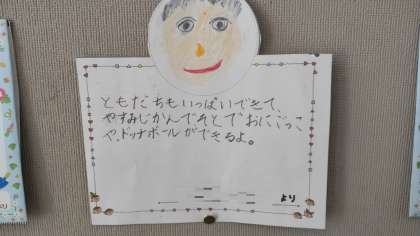 ともだちもいっぱいできて、
やすみじかんでそとでおにごっこ
や、ドッチボールができるよ。
より